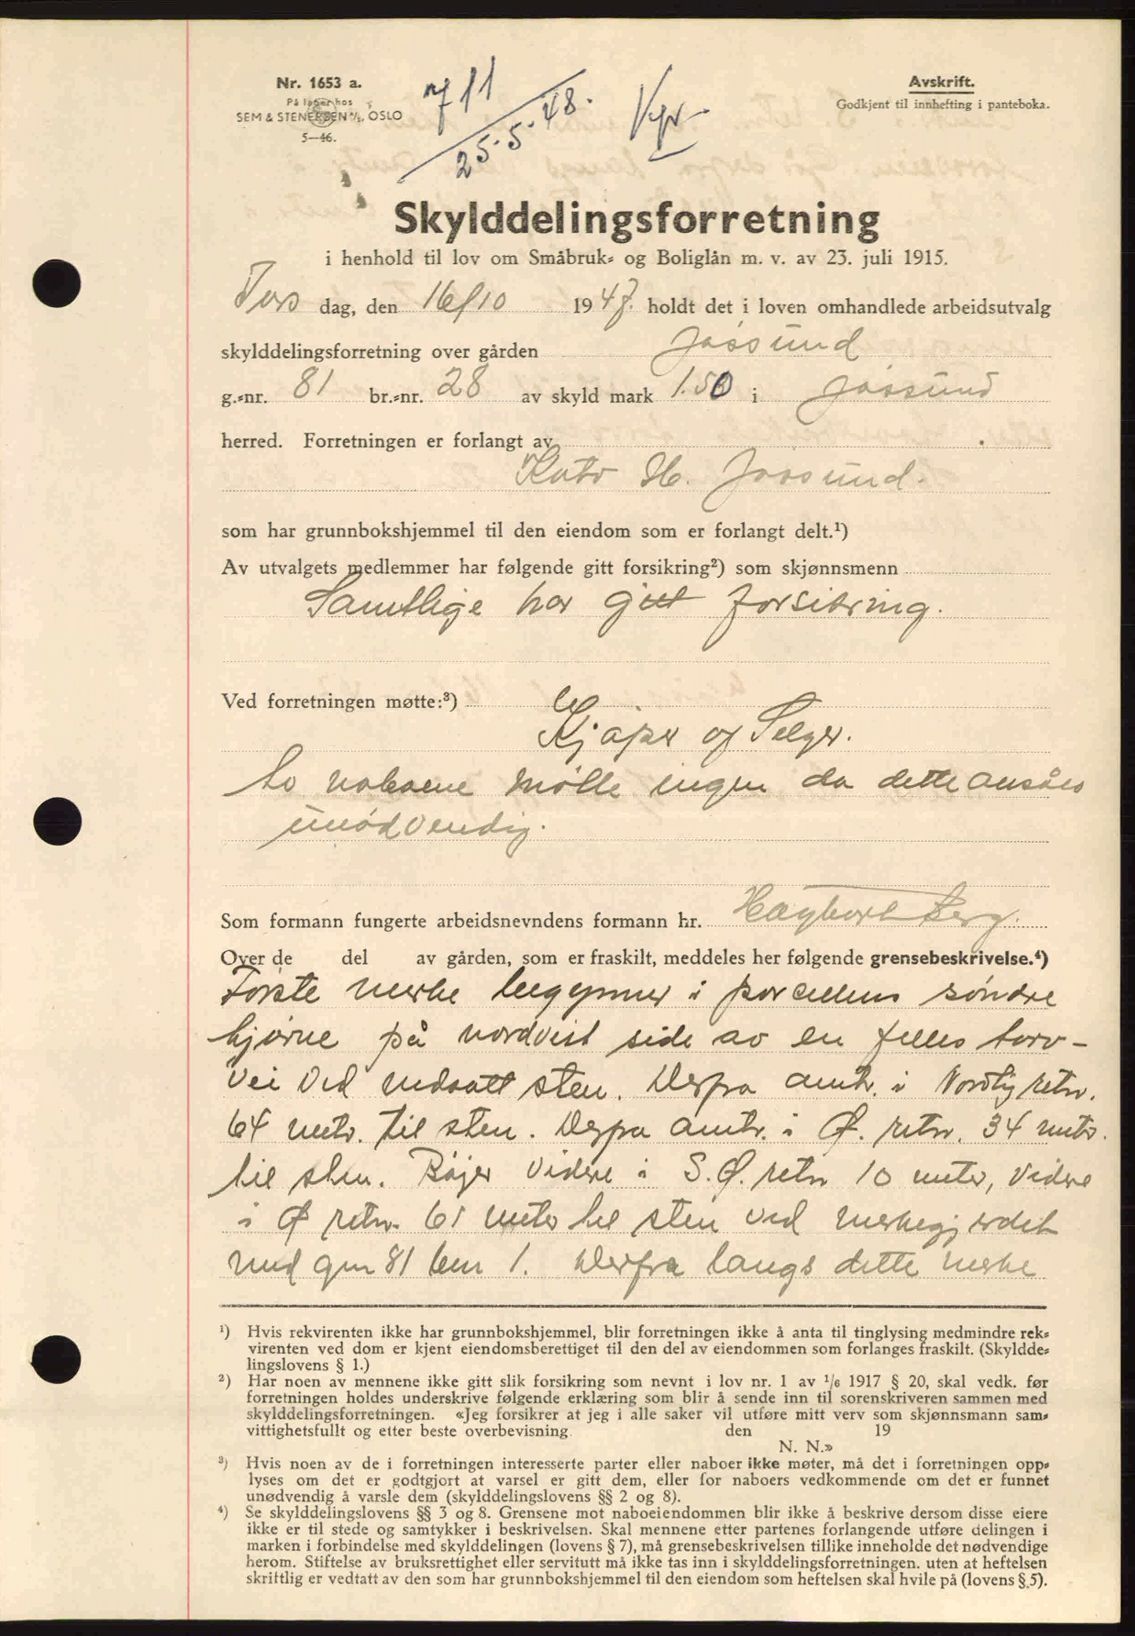 Nr. 1653 a.
På lager hos
SEM & STENERSEN A/S, OSLO
5—46.
711
25-5-48.
Avskrift.
Godkjent til innhefting i panteboka.
Skylddelingsforretning
i henhold til lov om Småbruk- og Boliglån m. v. av 23. juli 1915.
Tors dag, den 16/10 1947. holdt det i loven omhandlede arbeidsutvalg
skylddelingsforretning over gården Jøssund
g.-nr. 81 br.-nr. 28 av skyld mark 1.50 i Jøssund
herred. Forretningen er forlangt av
H. Jøssund.
som har grunnbokshjemmel til den eiendom som er forlangt delt.¹)
Av utvalgets medlemmer har følgende gitt forsikring²) som skjønnsmenn
Samtlige har gitt forsikring.
Ved forretningen møtte:³)
Kjøper og Selger.
av naboene møtte ingen da dette ansåes
unødvendig.
Som formann fungerte arbeidsnevndens formann hr. Hagbart Berg.
Over de del av gården, som er fraskilt, meddeles her følgende grensebeskrivelse.⁴)
Første merke begynner i parcellens søndre
hjørne på nordvest side av en felles torv-
vei ved nedsatt sten. Derfra omtr. i Nordlig retn.
64 metr. til sten. Derfra omtr. i Ø. retn. 34 metr.
til sten. Bøjer videre i S.Ø. retn 10 meter, videre
i Ø retn. 61 meter til sten ved merkegjerdet
med gnr 81 bnr 1. Derfra langs dette merke
¹) Hvis rekvirenten ikke har grunnbokshjemmel, blir forretningen ikke å anta til tinglysing medmindre rek-
virenten ved dom er kjent eiendomsberettiget til den del av eiendommen som forlanges fraskilt. (Skyldde-
lingslovens § 1.)
²) Har noen av mennene ikke gitt slik forsikring som nevnt i lov nr. 1 av 1/6 1917 § 20, skal vedk. før
forretningen holdes underskrive følgende erklæring som blir å sende inn til sorenskriveren sammen med
skylddelingsforretningen. «Jeg forsikrer at jeg i alle saker vil utføre mitt verv som skjønnsmann sam-
vittighetsfullt og etter beste overbevisning. den 19
N. N.»
³) Hvis noen av de i forretningen interesserte parter eller naboer ikke møter, må det i forretningen opp-
lyses om det er godtgjort at varsel er gitt dem, eller for naboers vedkommende om det er funnet
unødvendig å varsle dem (skylddelingslovens §§ 2 og 8).
⁴) Se skylddelingslovens §§ 3 og 8. Grensene mot naboeiendommen blir ikke å beskrive dersom disse eiere
ikke er til stede og samtykker i beskrivelsen. Skal mennene etter partenes forlangende utføre delingen i
marken i forbindelse med skylddelingen (lovens § 7), må grensebeskrivelsen tillike inneholde det nødvendige
herom. Stiftelse av bruksrettighet eller servitutt må ikke tas inn i skylddelingsforretningen. uten at heftelsen
skriftlig er vedtatt av den som har grunnbokshjemmel til den eiendom som heftelsen skal hvile på (lovens § 5).